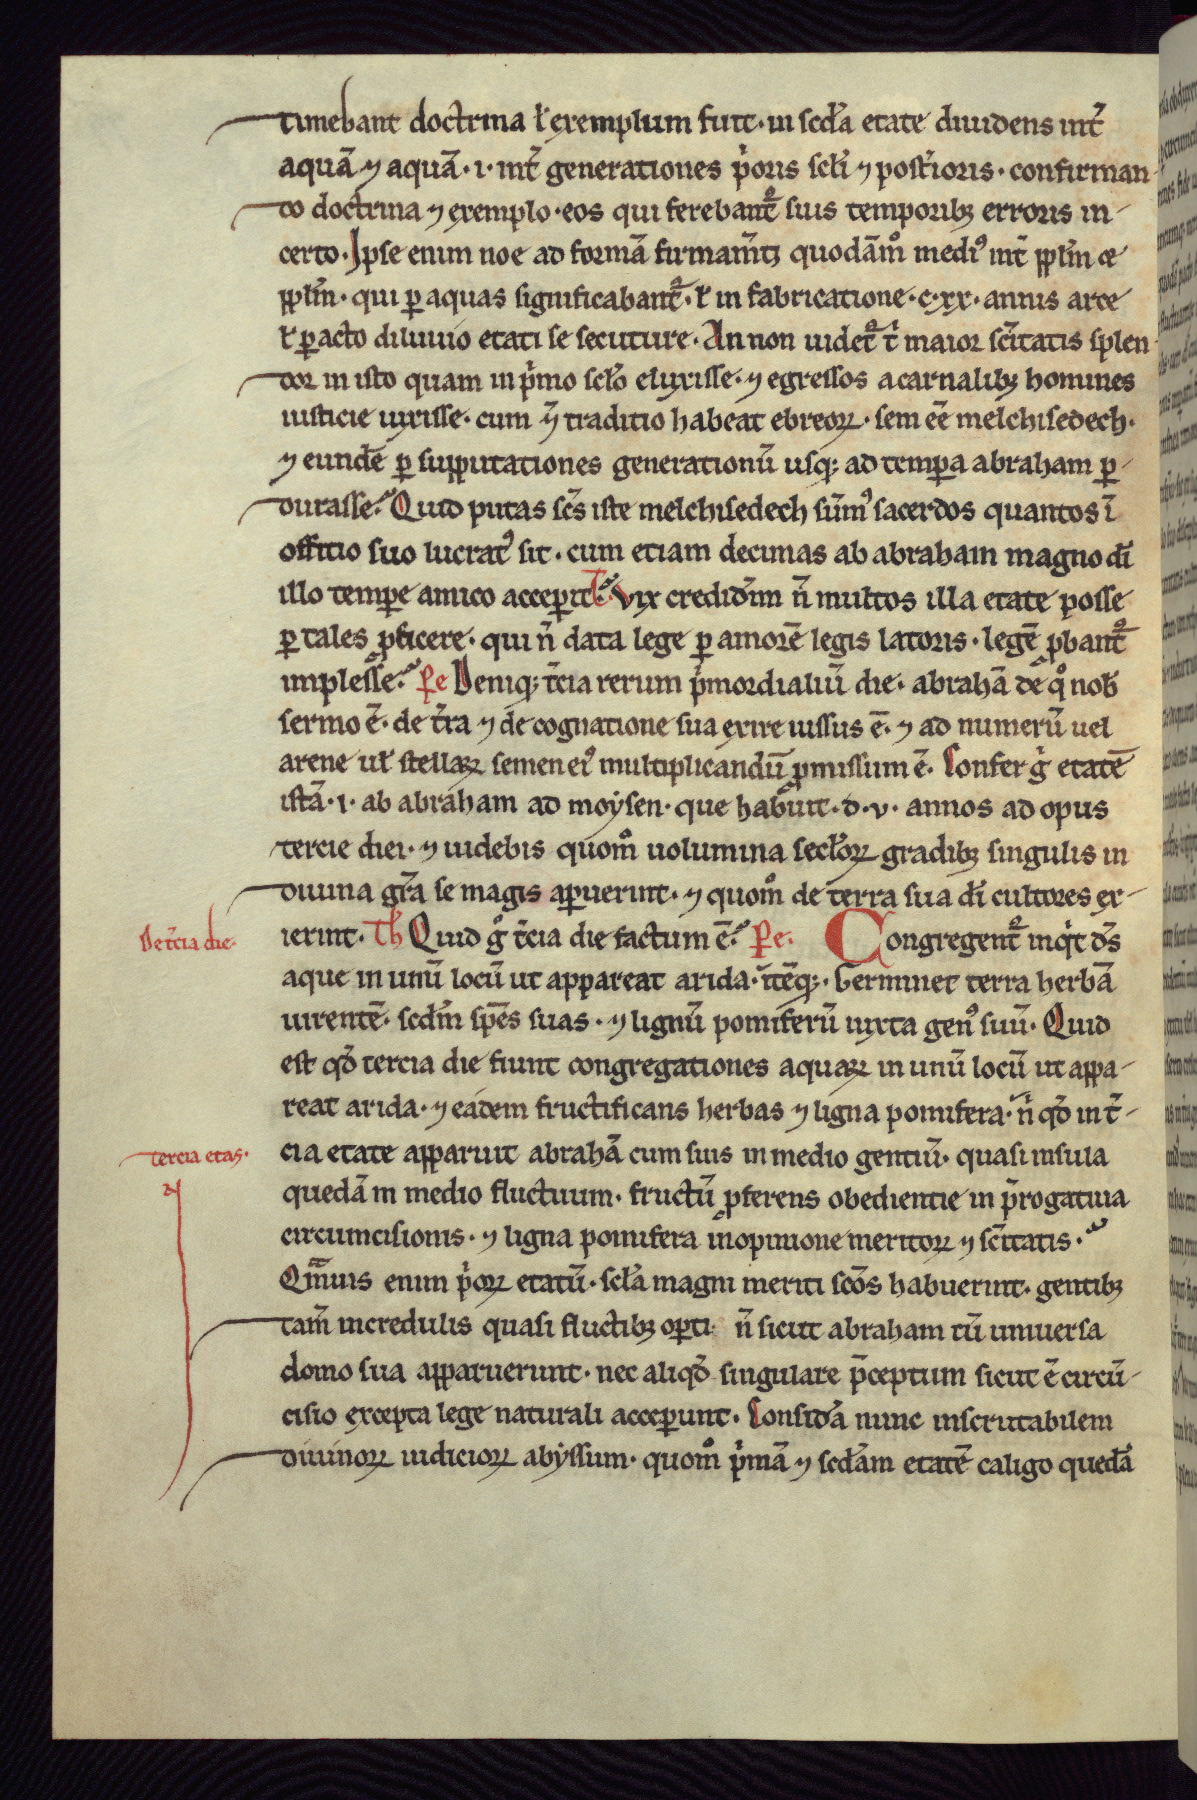 timebant doctrina ł exemplum fuit· in scđa etate diuidens int̄
aquā ⁊ aquā· i· int̄ generationes p̄oris scłi ⁊ post̄ioris· confirman
do doctrina ⁊ exemplo· eos qui ferebant᷑ suis temporibꝫ erroris in-
certo· Ipse enim noe ad formā firmam̄tꝫ quodām̊ mediꝰ int̄ ppl̄m &
ppl̄m· qui ꝑ aquas significabant᷑· ł in fabricatione· c·xx· annis arce
ł ꝑacto diluuio etati se secuture· An non uidet᷑ t̄ maior sc̄itatis splen
dor in isto quam in p̄mo scło eluxisse· ⁊ egressos a carnalibꝫ homines
iusticie uixisse· cum ⁊ traditio habeat ebreoꝝ· sem eē melchisedech·
⁊ eundē ꝑ supputationes generationū usqꝫ ad temꝑa abraham ꝑ-
durasse· Quid putas scs̄ iste melchisedech sūmꝰ sacerdos quantos ī
offitio suo lucratꝰ sit· cum etiam decimas ab abraham magno dī
illo temꝑe amico acceperit· Th Vix crediđim n̄ multos illa etate posse
ꝑ tales ꝓficere· qui n̄ data lege ꝑ amorē legis latoris· legē ꝓbant᷑
implesse· Pe Deniqꝫ t̄cia rerum p̄mordialiū die· abrahā de q̊ nob̄
sermo ē· de t̄ra ⁊ de cognatione sua exire iussus ē· ⁊ ad numerū uel
arene uł stellaꝝ semen eiꝰ multiplicandū ꝓmissum ē· Confer g̊ etatē
istā· i· ab abraham ad moysen· que hab̄uit· d·v· annos ad opus
tercie diei· ⁊ uidebis quom̊ uolumina secłoꝝ gradibꝫ singulis in
diuina gr̄a se magis aꝑuerint· ⁊ quom̊ de terra sua dī cultores ex-
De t̄cia die·
ierint· Th Quid g̊ t̄cia die factum ē· Pe· Congregent᷑ inqͥt ds̄
aque in unū locū ut appareat arida· itēqꝫ· Germinet terra herbā
uirentē· scđm spēs suas· ⁊ lignū pomiferū iuxta genꝰ suū· Quid
est qđ tercia die fiunt congregationes aquaꝝ in unū locū ut appa-
reat arida· ⁊ eadem fructificans herbas ⁊ ligna pomifera· n̄ qđ in t̄-
tercia etas·
cia etate apparuit abrahā cum suis in medio gentiū· quasi insula
quedā in medio fluctuum· fructū ꝓferens obedientie in p̄rogatiua
circumcisionis· ⁊ ligna pomifera in opinione meritoꝝ ⁊ sc̄itatis·
Qm̄uis enim p̄oꝝ etatū· scła magni meriti scōs habuerint· gentibꝫ
tam̄ incredulis quasi fluctibꝫ oꝑti· n̄ sicut abraham cū uniuersa
domo sua apparuerunt· nec aliqđ singulare p̄ceptum sicut ē circū-
cisio excepta lege naturali acceperunt· Consiđa nunc inscrutabilem
diuinoꝝ iudicioꝝ abyssum· quom̊ p̄mā ⁊ scđam etatē caligo quedā